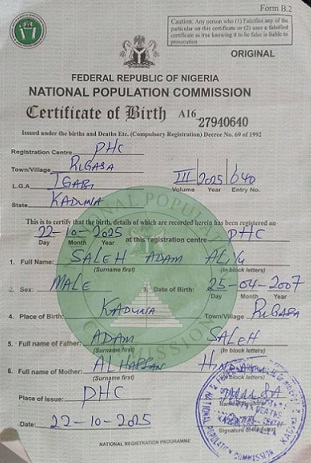 Form B.2
Caution: Any person who (1) Falsifies any of the particular on this certificate or (2) uses a falsified certificate as true knowing it to be false is liable to prosecution
ORIGINAL
FEDERAL REPUBLIC OF NIGERIA
NATIONAL POPULATION COMMISSION
Certificate of Birth A16 27940640
Issued under the births and Deaths Etc. (Compulsory Registration) Decree No. 69 of 1992
Registration Centre PHC
Town/Village RIGASA
L.G.A IGABI III 2025 040
Volume Year Entry No.
State KADUNA
This is to certify that the birth, details of which are recorded herein has been registered on
22-10-2025 at this registration centre PHC
Day Month Year
1. Full Name: SALEH ADAM ALIYU
(Surname first) (In block letters)
2. Sex: MALE 3. Date of Birth: 25-04-2007
Day Month Year
4. Place of Birth: KADUNA Town/Village RIGASA
5. Full name of Father: ADAM SALEH
(Surname first) (In block letters)
6. Full name of Mother: ALHASSAN
(Surname first) (In block letters)
Place of Issue: PHC
Date: 22-10-2025
NATIONAL REGISTRATION PROGRAMME